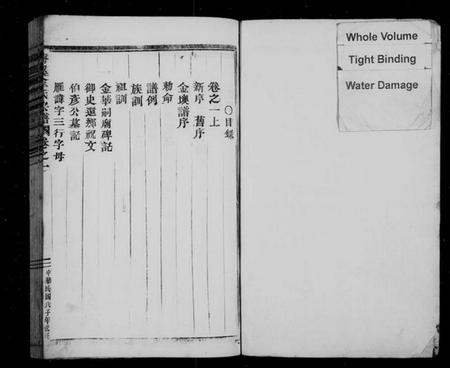 ○目錄
卷之一上
新序 舊序
金墺譜序
勅命
譜例
族訓
祖訓
金華嗣廟碑記
御史還鄉祝文
伯彥公墓記
雁諱字三行字母
卷之一
中華民國
Whole Volume
Tight Binding
Water Damage